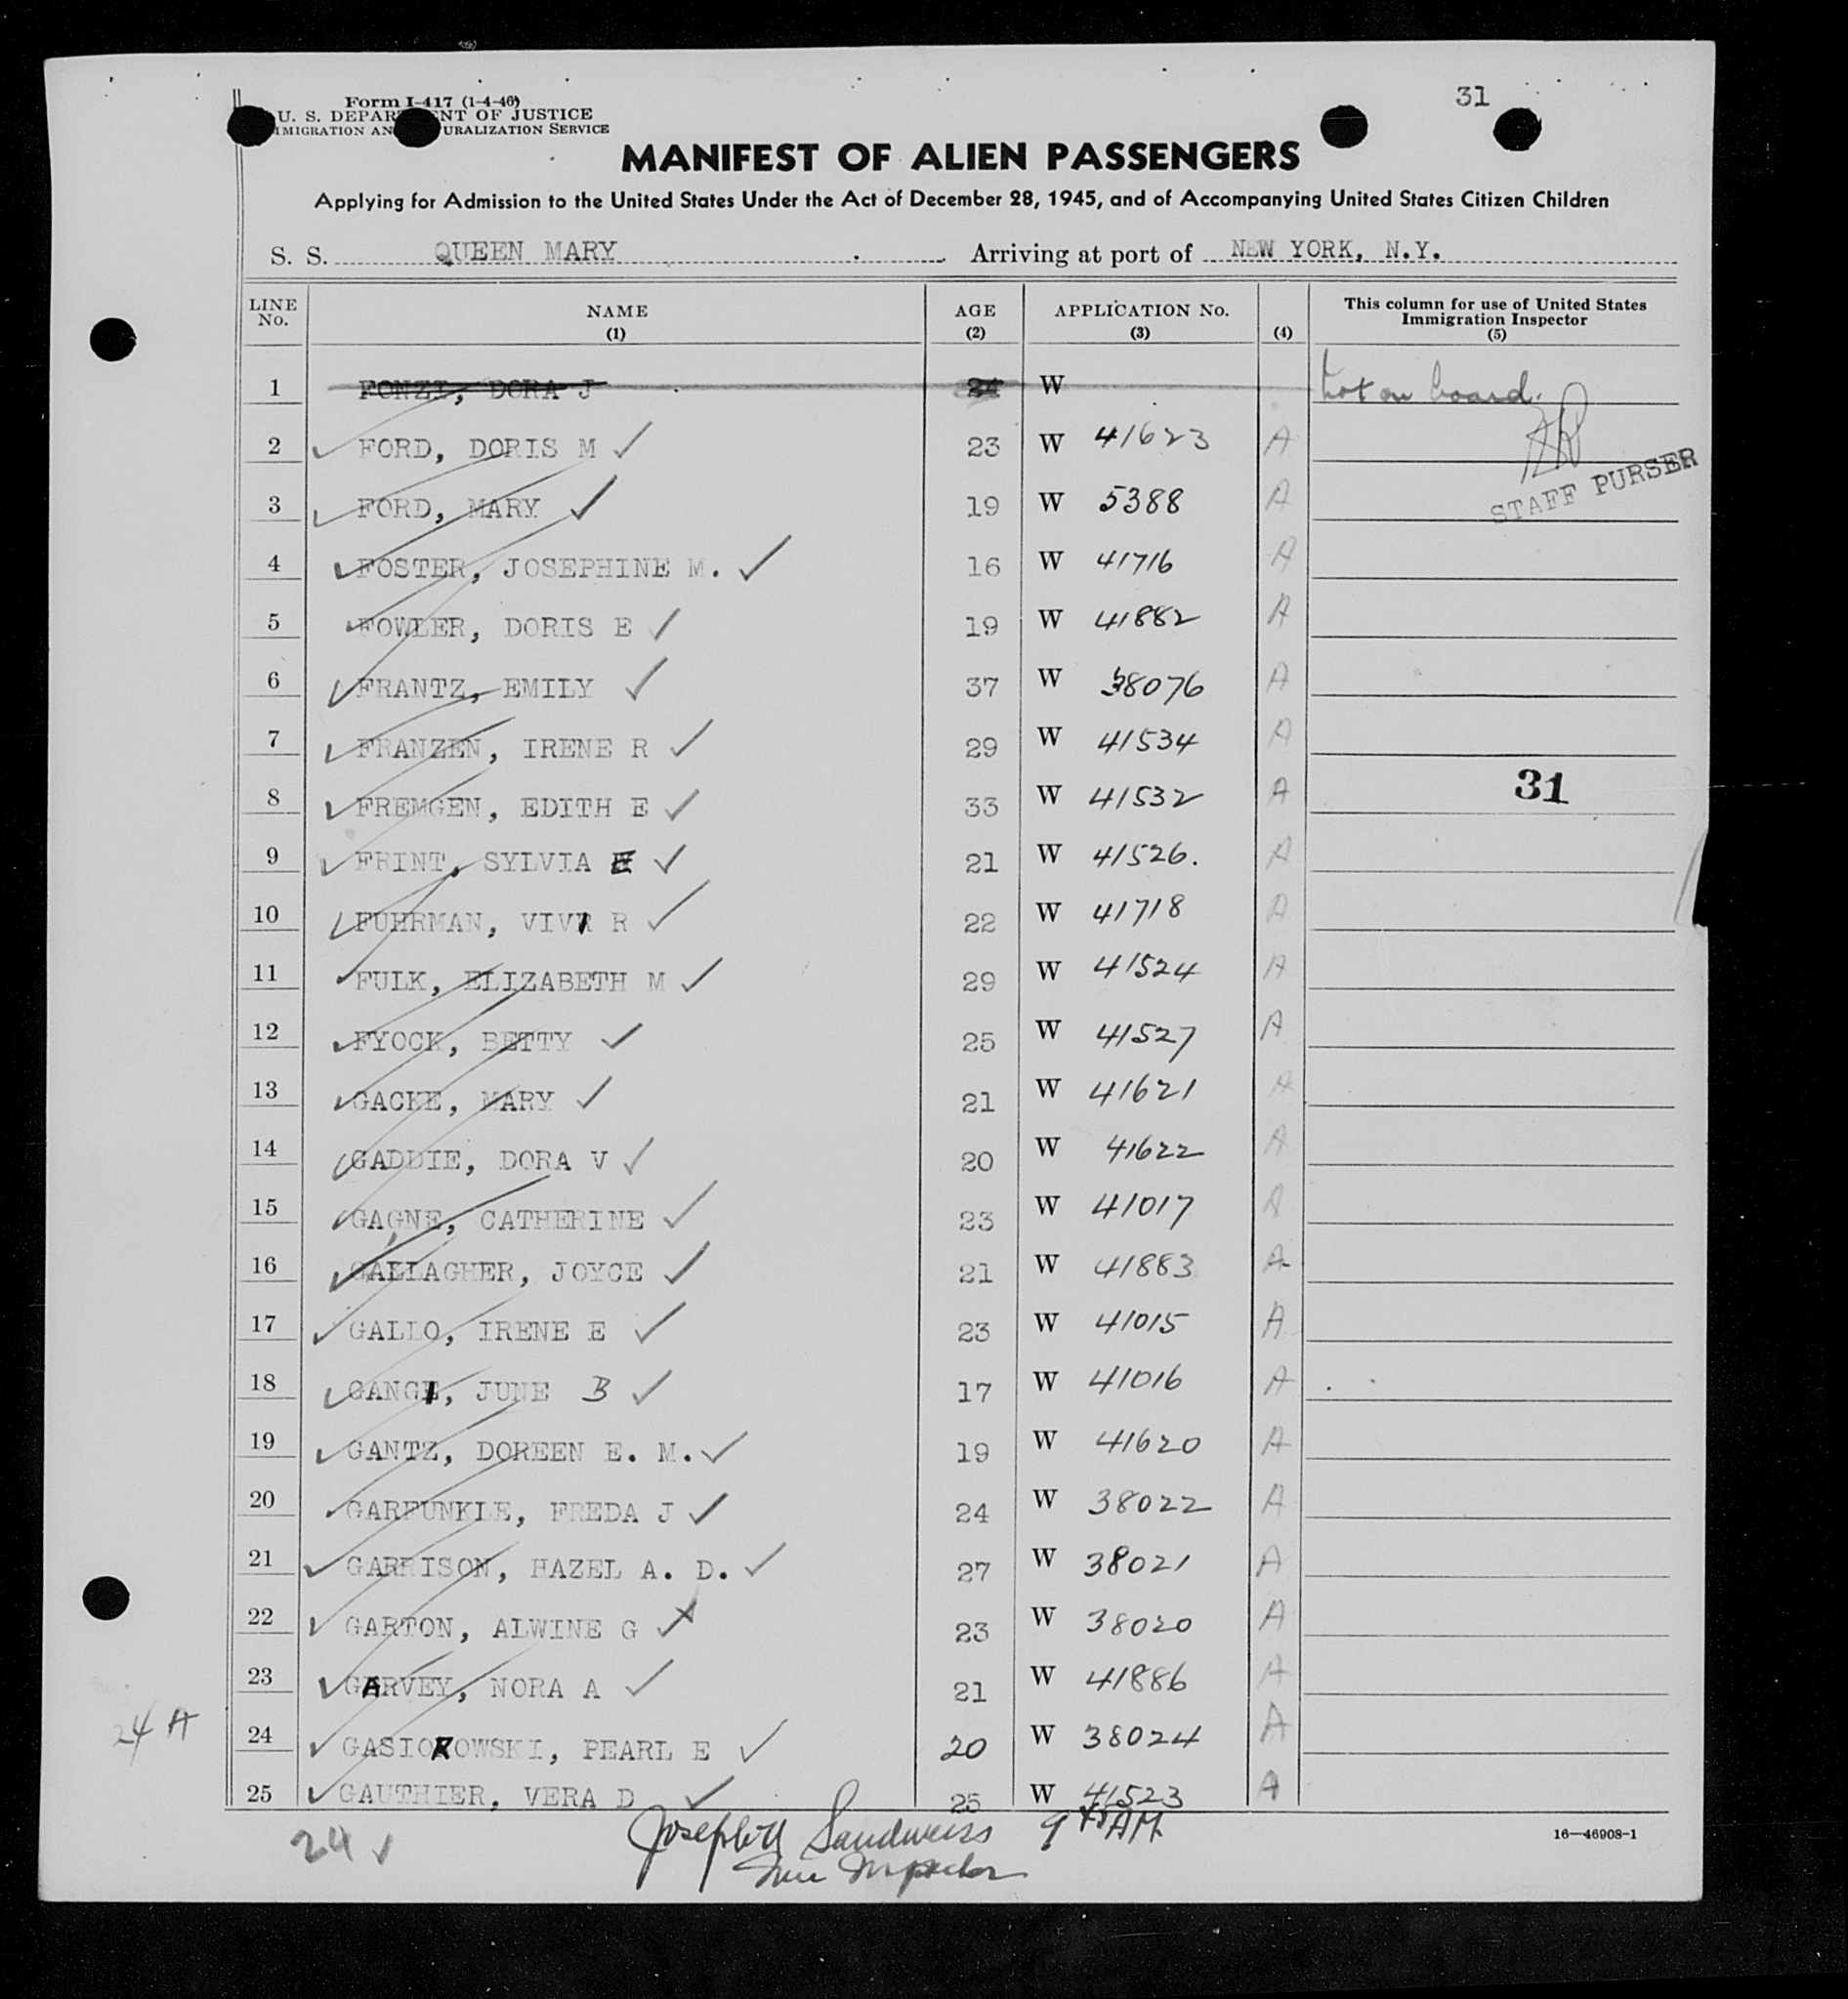 31
Form I-417 (1-4-46)
U. S. DEPARTMENT OF JUSTICE
IMMIGRATION AND NATURALIZATION SERVICE
MANIFEST OF ALIEN PASSENGERS
Applying for Admission to the United States Under the Act of December 28, 1945, and of Accompanying United States Citizen Children
S. S. QUEEN MARY Arriving at port of NEW YORK, N.Y.
LINE No. NAME (1) AGE (2) APPLICATION No. (3) (4) This column for use of United States Immigration Inspector (5)
1 FONZI, DORA J 24 W Not on board.
2 FORD, DORIS M 23 W 41623 A
STAFF PURSER
3 FORD, MARY 19 W 5388 A
4 FOSTER, JOSEPHINE M. 16 W 41716 A
5 FOWLER, DORIS E 19 W 41882 A
6 FRANTZ, EMILY 37 W 38076 A
7 FRANZEN, IRENE R 29 W 41534 A
8 FREMGEN, EDITH E 33 W 41532 A 31
9 FRINT, SYLVIA E 21 W 41526. A
10 FUHRMAN, R 22 W 41718 A
11 FULK, ELIZABETH M 29 W 41524 A
12 FYOCK, BETTY 25 W 41527 A
13 GACKE, MARY 21 W 41621 A
14 GADDIE, DORA V 20 W 41622 A
15 GAGNE, CATHERINE 23 W 41017 A
16 GALLAGHER, JOYCE 21 W 41883 A
17 GALLO, IRENE E 23 W 41015 A
18 GANGI, JUNE B 17 W 41016 A
19 GANTZ, DOREEN E. M. 19 W 41620 A
20 GARFUNKLE, FREDA J 24 W 38022 A
21 GARRISON, HAZEL A. D. 27 W 38021 A
22 GARTON, ALWINE G 23 W 38020 A
23 GARVEY, NORA A 21 W 41886 A
24 A
24 GASIOROWSKI, PEARL E 20 W 38024 A
25 GAUTHIER, VERA D 25 W 41523 A
24 Joseph Sandweiss 9 45 AM
Inspector
16—46908-1